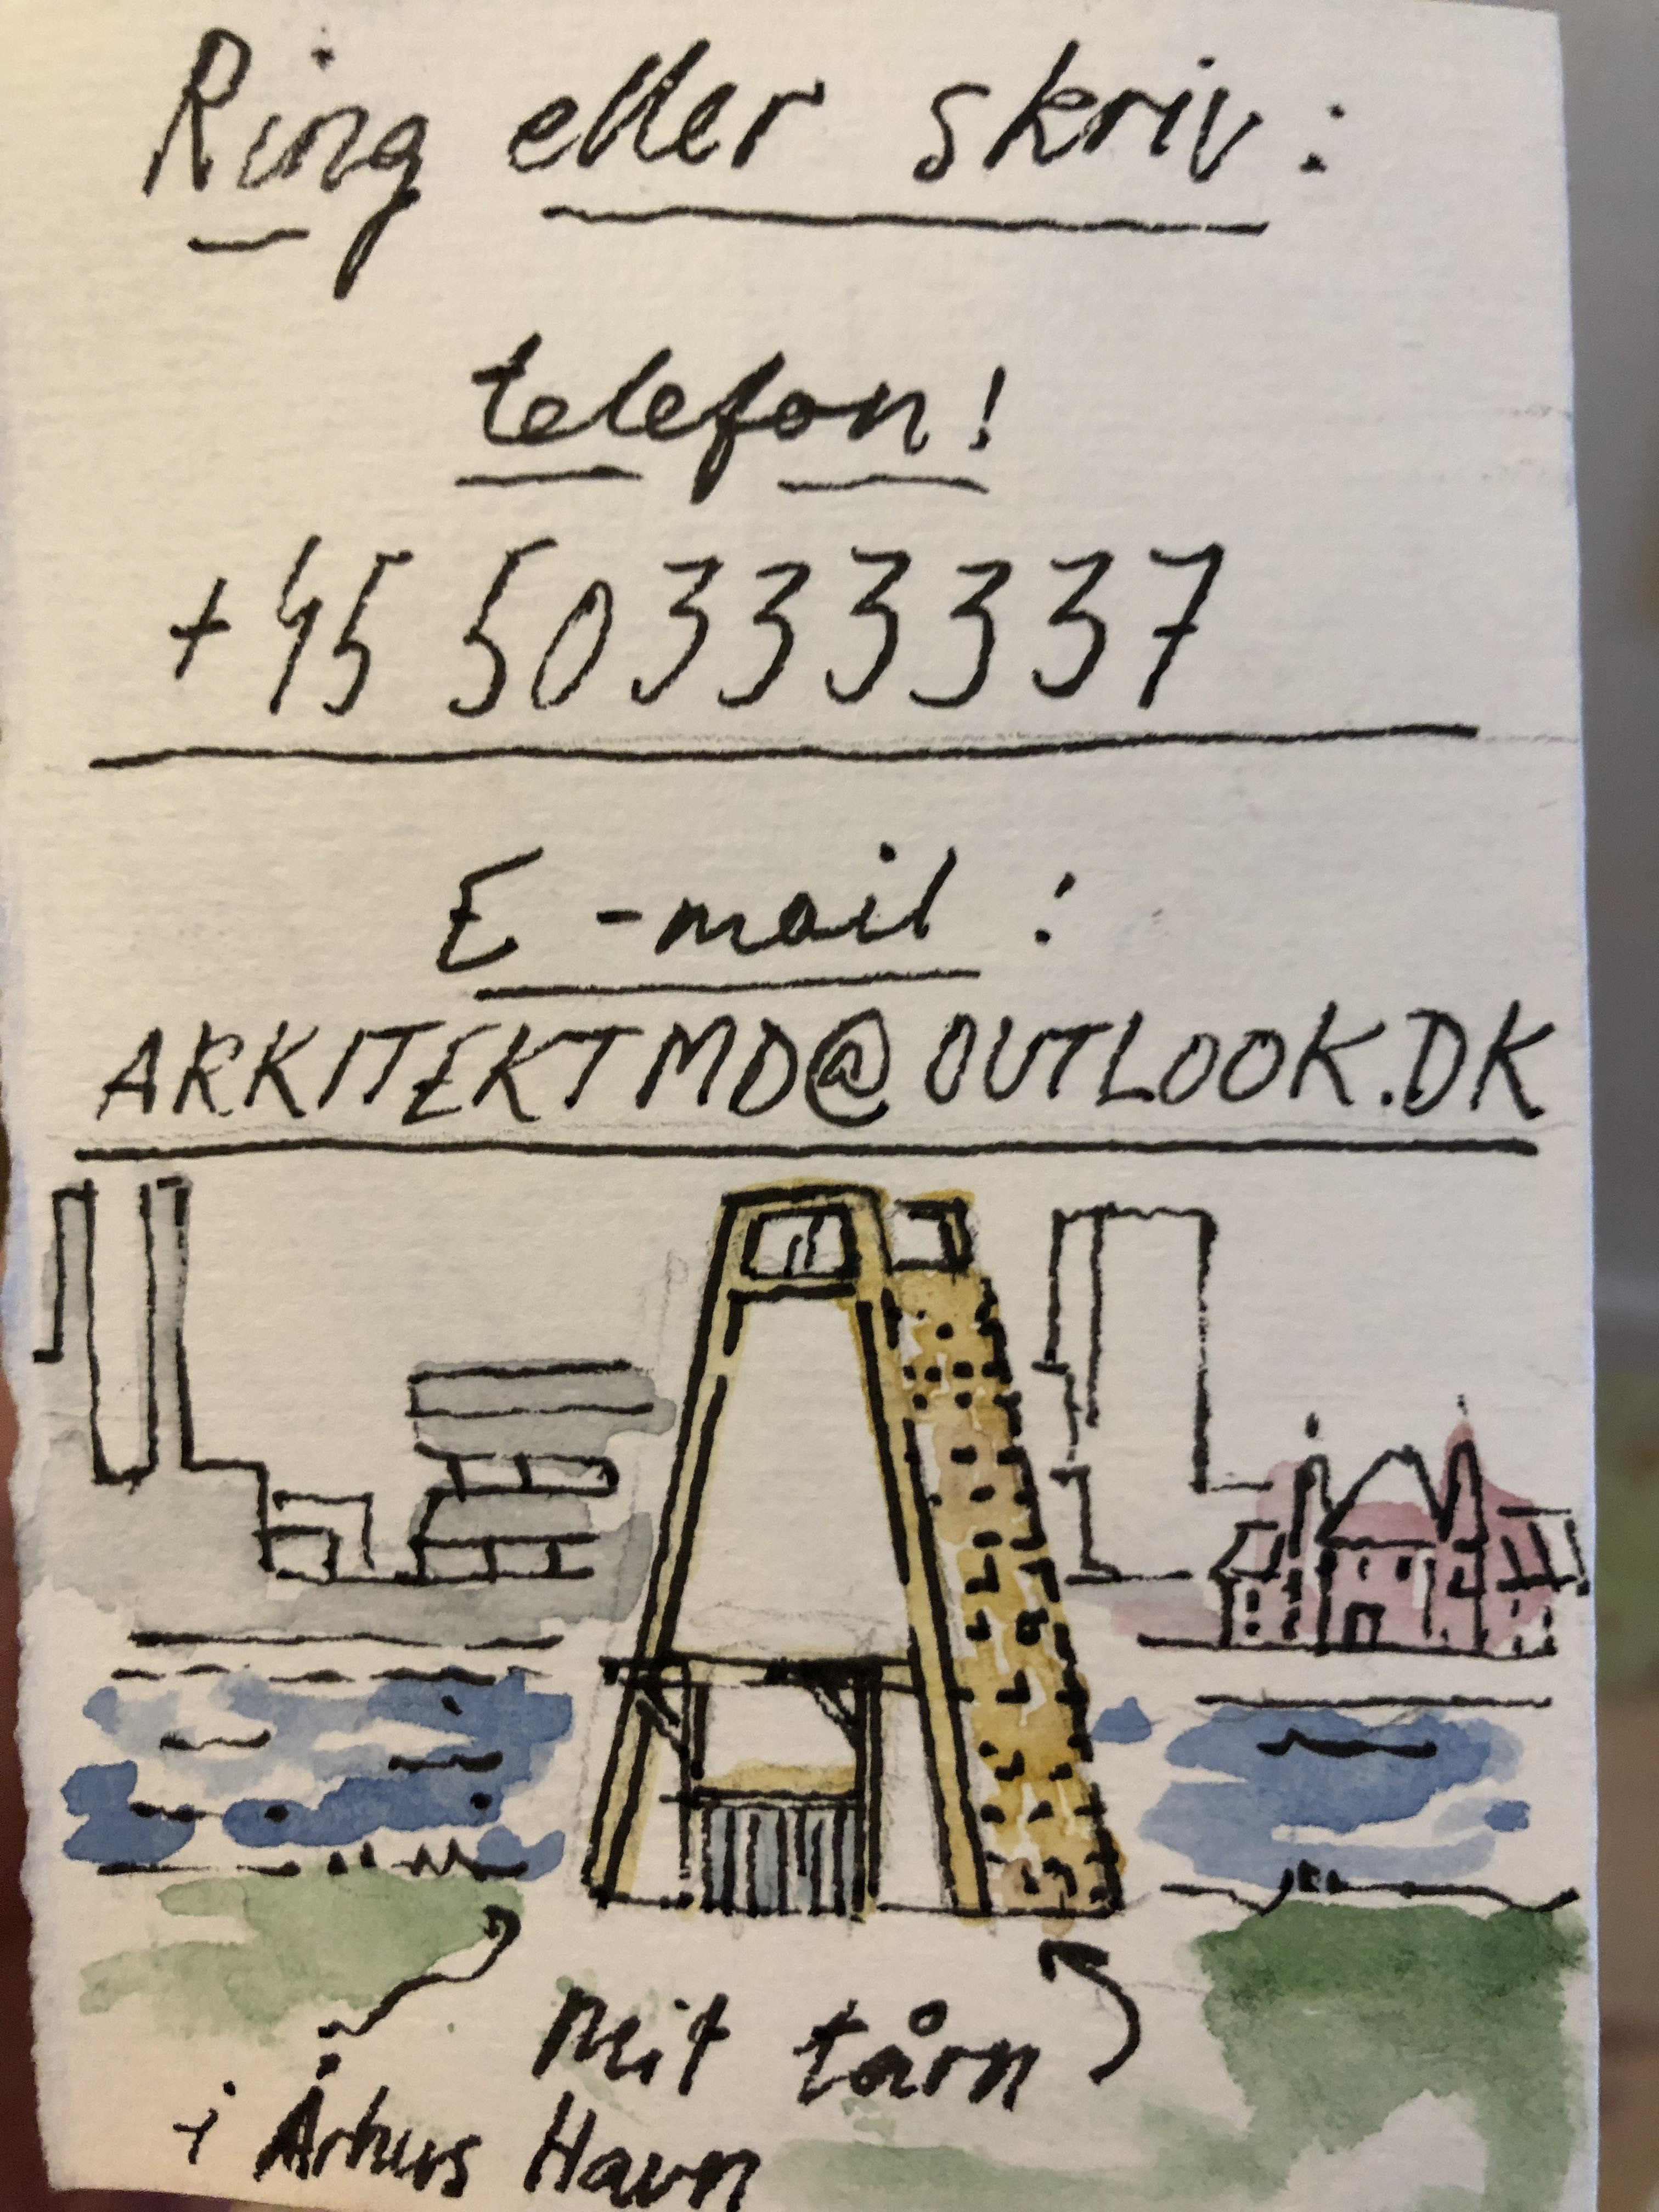 Ring eller skriv:
telefon!
+45 50333337
E-mail:
ARKITEKTMD@OUTLOOK.DK
Mit tårn
i Århus Havn